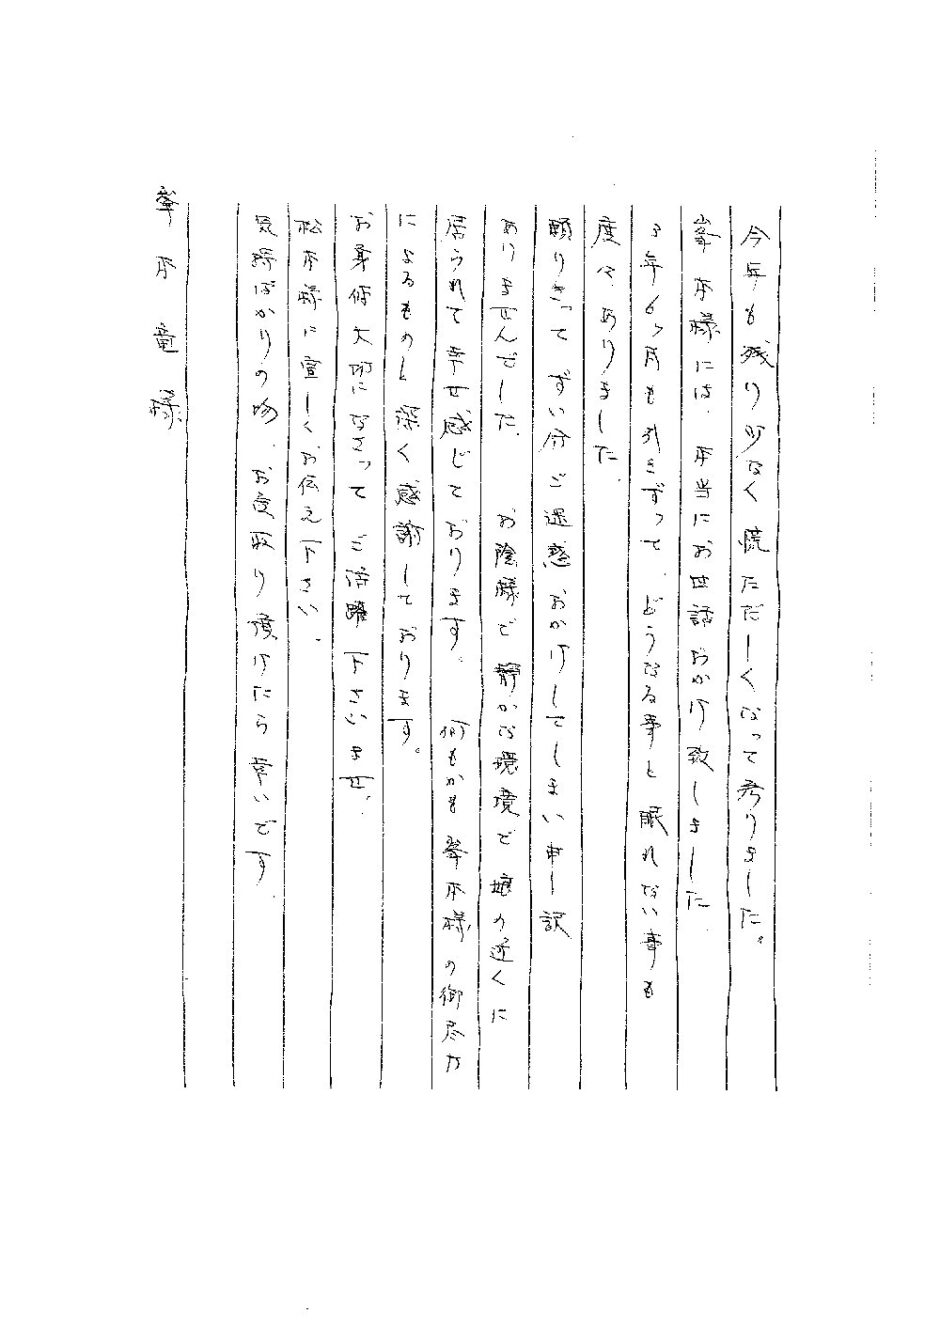 今年も残り少なく慌ただしくなって参りました。
峯本様には、本当にお世話おかけ致しました
3年6ヶ月も引きずって、どうなる事と眠れない事も
度々ありました
頼りきって ずい分ご迷惑おかけしてしまい申し訳
ありませんでした。 お陰様で静かな環境で娘の近くに
居られて幸せ感じております。 何もかも峯本様の御尽力
によるものと深く感謝しております。
お身体大切になさって ご活躍下さいませ、
松本様に宜しくお伝え下さい、
気持ばかりの物、お受取り頂けたら幸いです
峯本竜様